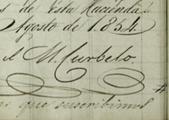 de esta Hacienda.
Agosto de 1834.
M. Curbelo.
que suscribimos